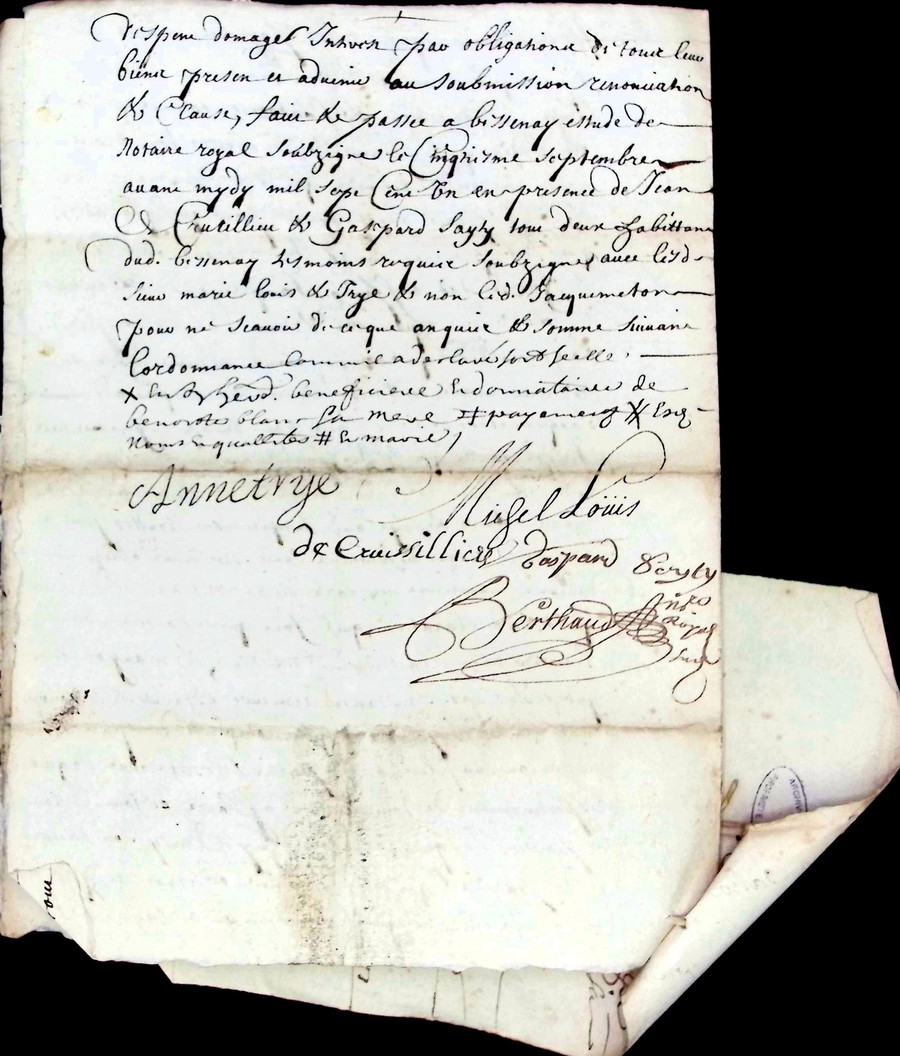 despens domages Interes par obligations de tous leur
biens presen et advenir au soubmission renonciation
& Clauses, faict & passé a bessenay estude de
Notaire royal soubzigne le Cinqiesme septembre
avant mydy mil sept Cent Un en presence de Jean
de Crusillieu & Gaspard Sayty tous deux habittans
dud. bessenay tesmoins requis soubzignes avec lesd.
sieur marie louis & Trye & non led. Jacquemeton
pour ne scavoir de ce que enquis & somme suivant
Lordonnance Comme il a desclaré soit scelle.
X beneficiere & donnataire de
benoiste blanc sa mere # payement X Esq
noms & quallités # & marie
Anne trye
Michel Loüis
de Cruissillieu Gaspard
Berthaud nre
Royal